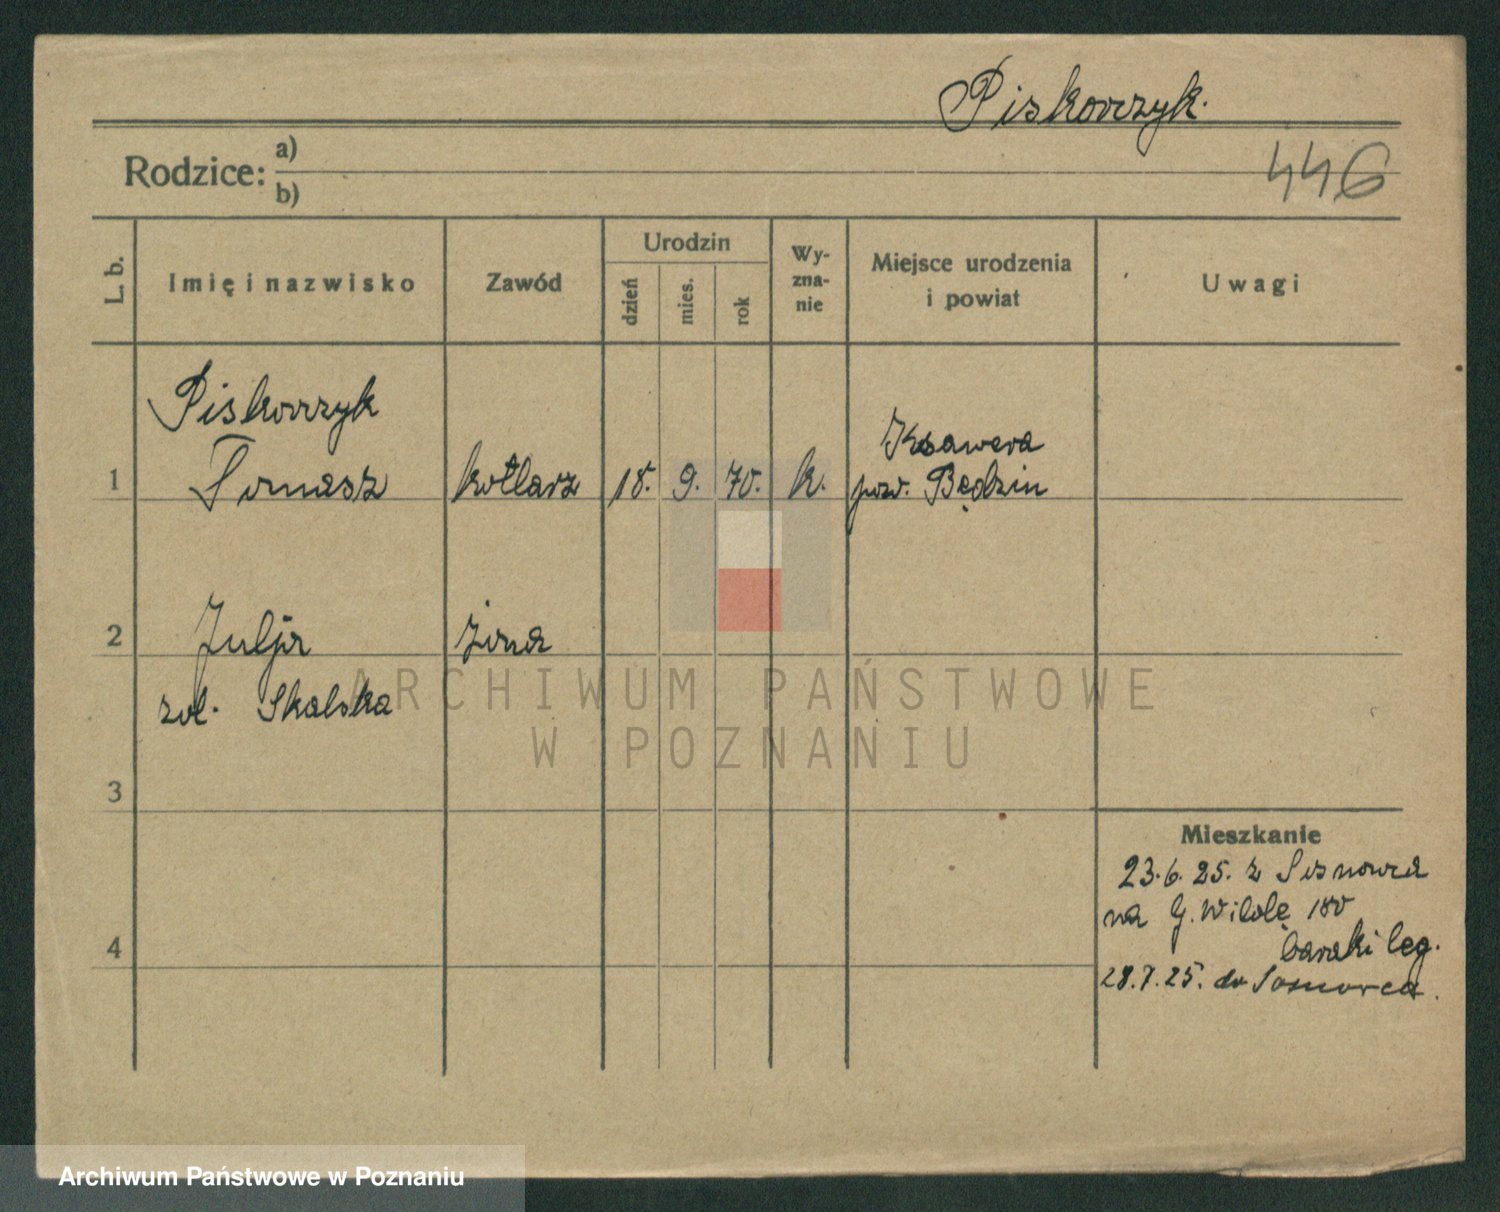 Piskorczyk.
446
Rodzice: a)
b)
L. b.
Imię i nazwisko
Zawód
Urodzin
dzień
mies.
rok
Wy-
zna-
nie
Miejsce urodzenia
i powiat
Uwagi
Piskorczyk
1 Tomasz kotlarz 18. 9. 70. k.
Ksawera
pow. Będzin
2 Julja żona
zol. Skalska
3
4
Mieszkanie
23.6.25. z Sosnowca
na G. Wildę 180
baraki leg.
28.7.25. do Sosnowca.
ARCHIWUM PAŃSTWOWE
W POZNANIU
Archiwum Państwowe w Poznaniu